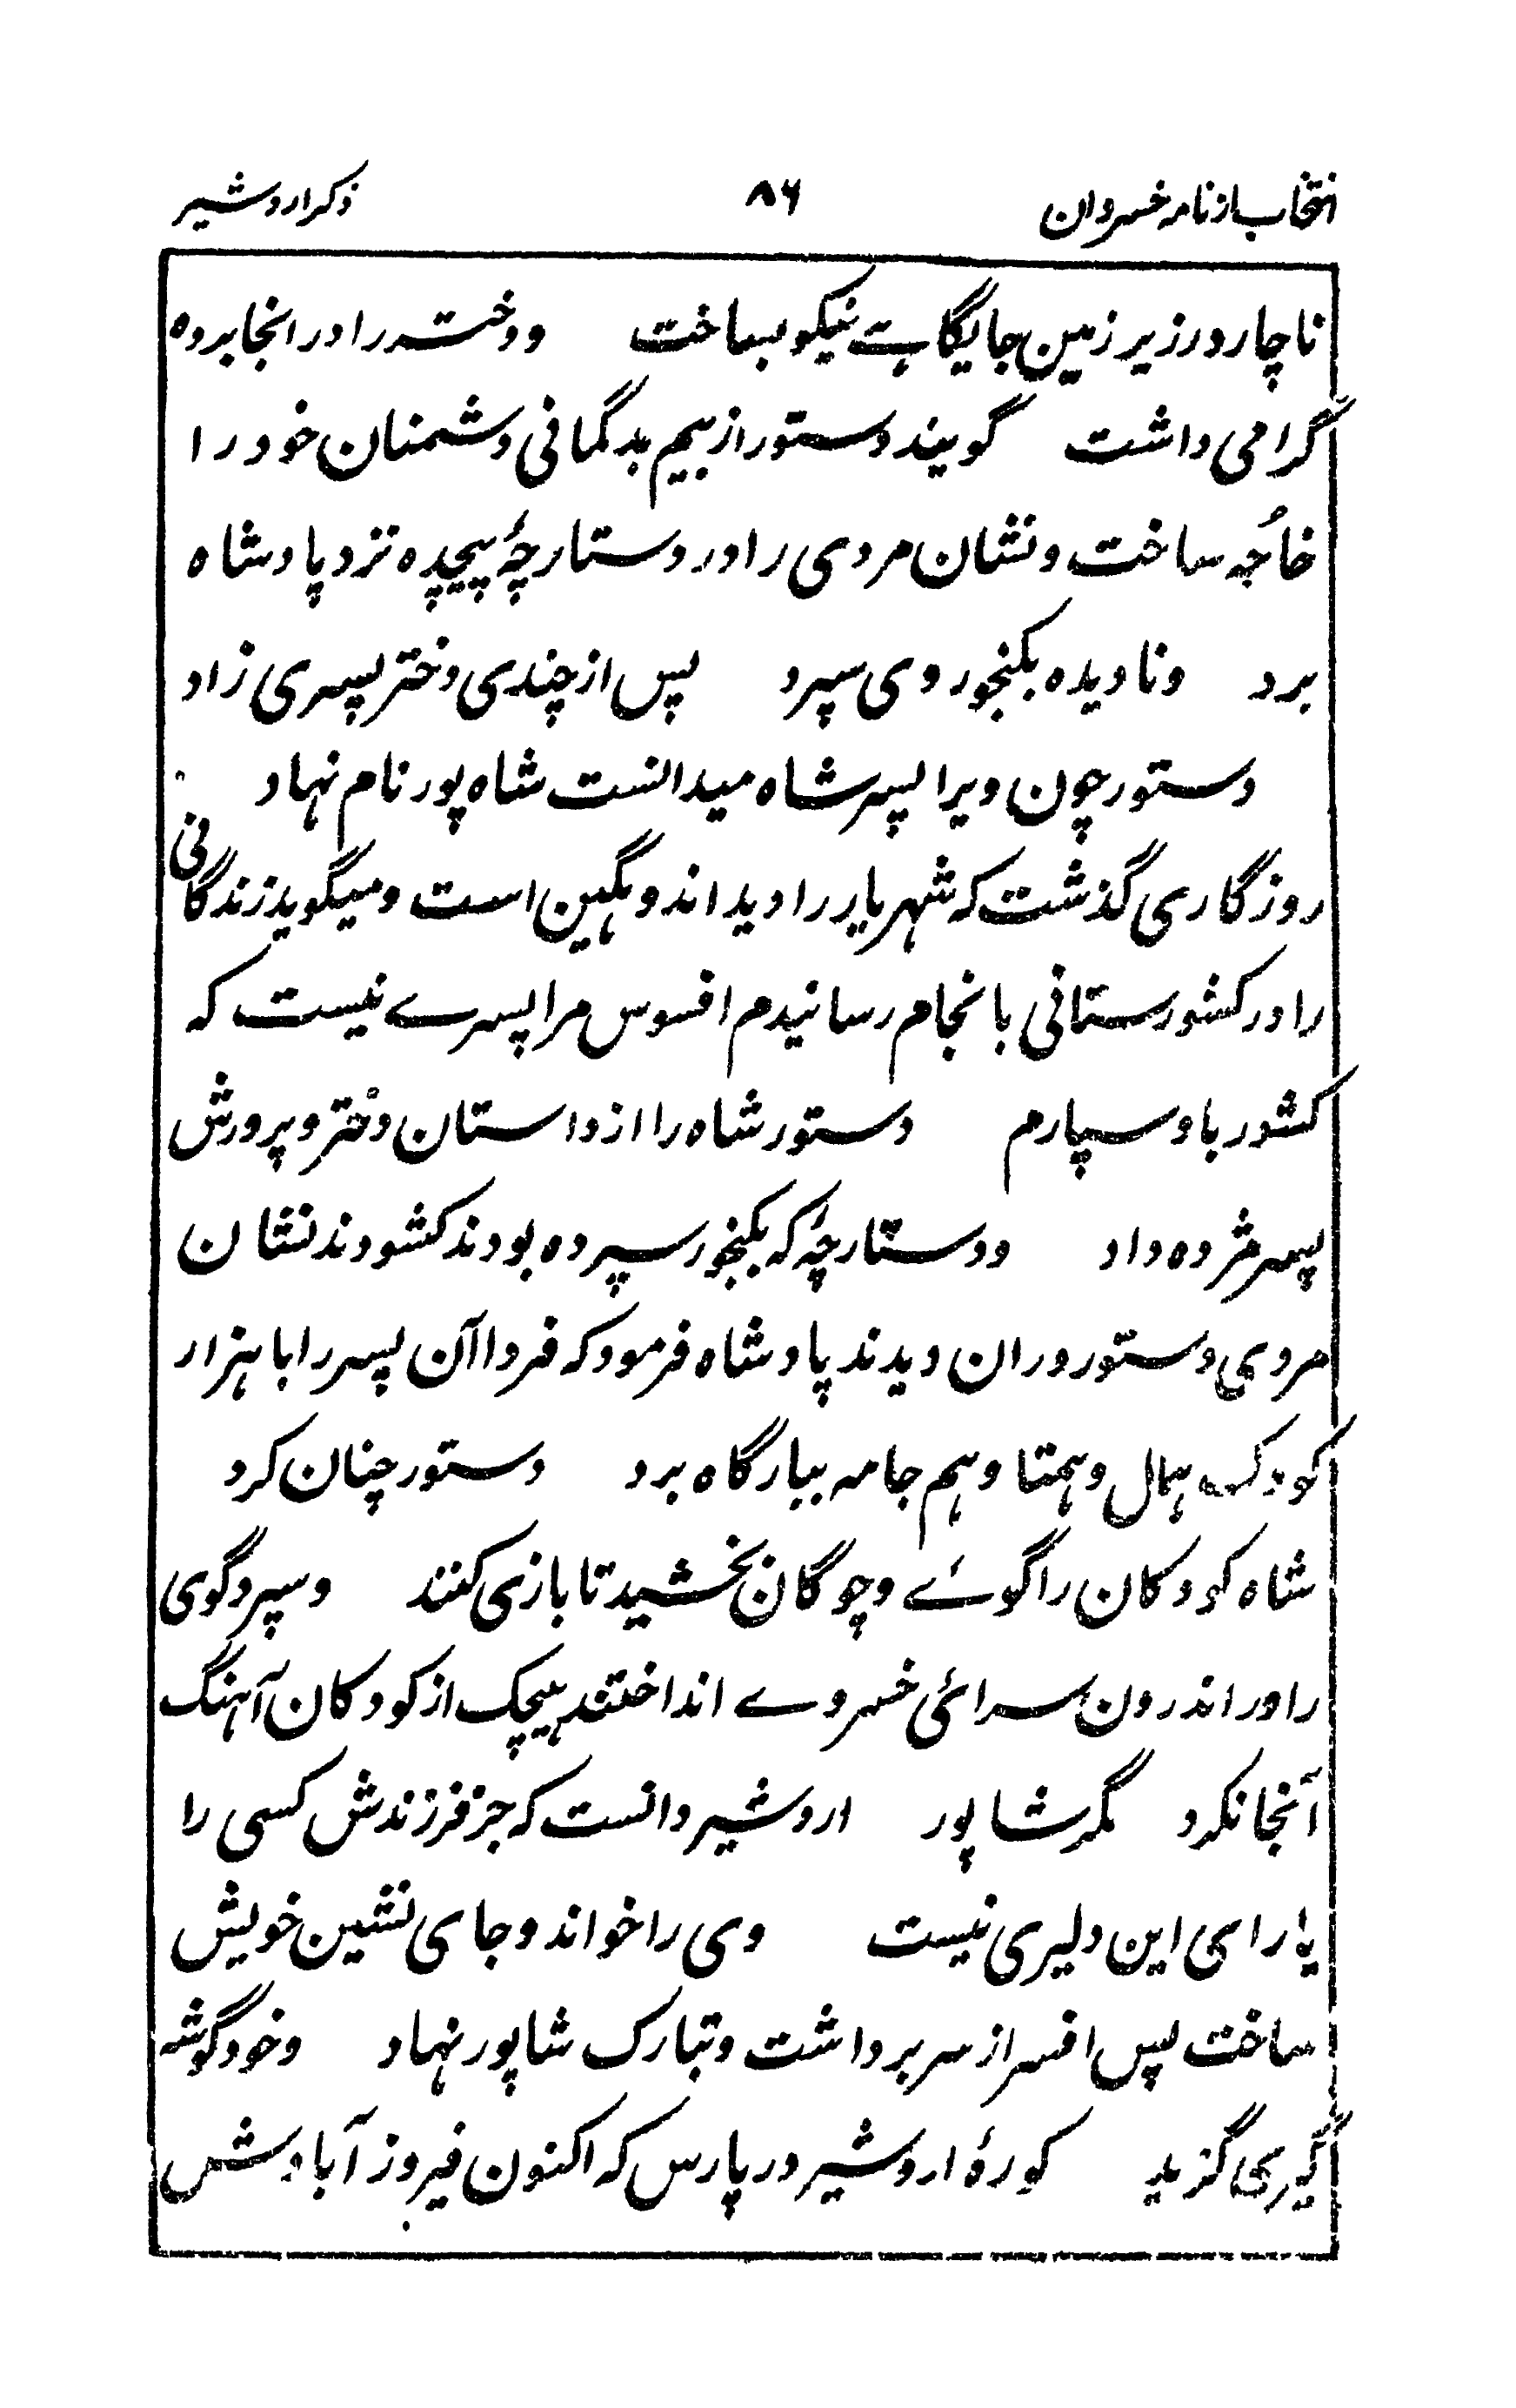 انتخاب از نامه خسروان ۸۶ ذکر اردشیر
ناچار در زیر زمین جایگاہے نیکو بساخت ودختر را در انجا برده
گرامی داشت گویند دستور از بیم بدگمانی دشمنان خود را
خاجه ساخت ونشان مردی را در دستارچهٔ پیچیده نزد پادشاه
برد ونادیده بگنجور وی سپرد پس از چندی دختر پسری زاد
دستور چون ویرا پسر شاه میدانست شاه پور نام نهاد
روزگاری گذشت که شهریار را دید اندوہگین است ومیگوید زندگانی
را در کشورستانی بانجام رسانیدم افسوس مرا پسرے نیست که
کشور باو سپارم دستور شاه را از داستان دختر و پرورش
پسر مژده داد ودستارچهٔ که بگنجور سپرده بودند کشودند نشان
مردی دستور دران دیدند پادشاه فرمود که فردا آن پسر را با هزار
کودک ہمال وہمتا وہم جامه ببارگاه برد دستور چنان کرد
شاه کودکان را گوئے وچوگان بخشید تا بازی کنند وسپرد گوی
را در اندرون سرائی خسروے انداختند ہیچیک از کودکان آہنگ
آنجا نکرد مگر شاپور اردشیر دانست که جز فرزندش کسی را
یارای این دلیری نیست وی را خواند وجای نشین خویش
ساخت پس افسر از سر برداشت وبتارک شاپور نہاد وخود گوشه
گیری گزید کورهٔ اردشیر در پارس که اکنون فیروز آبادش